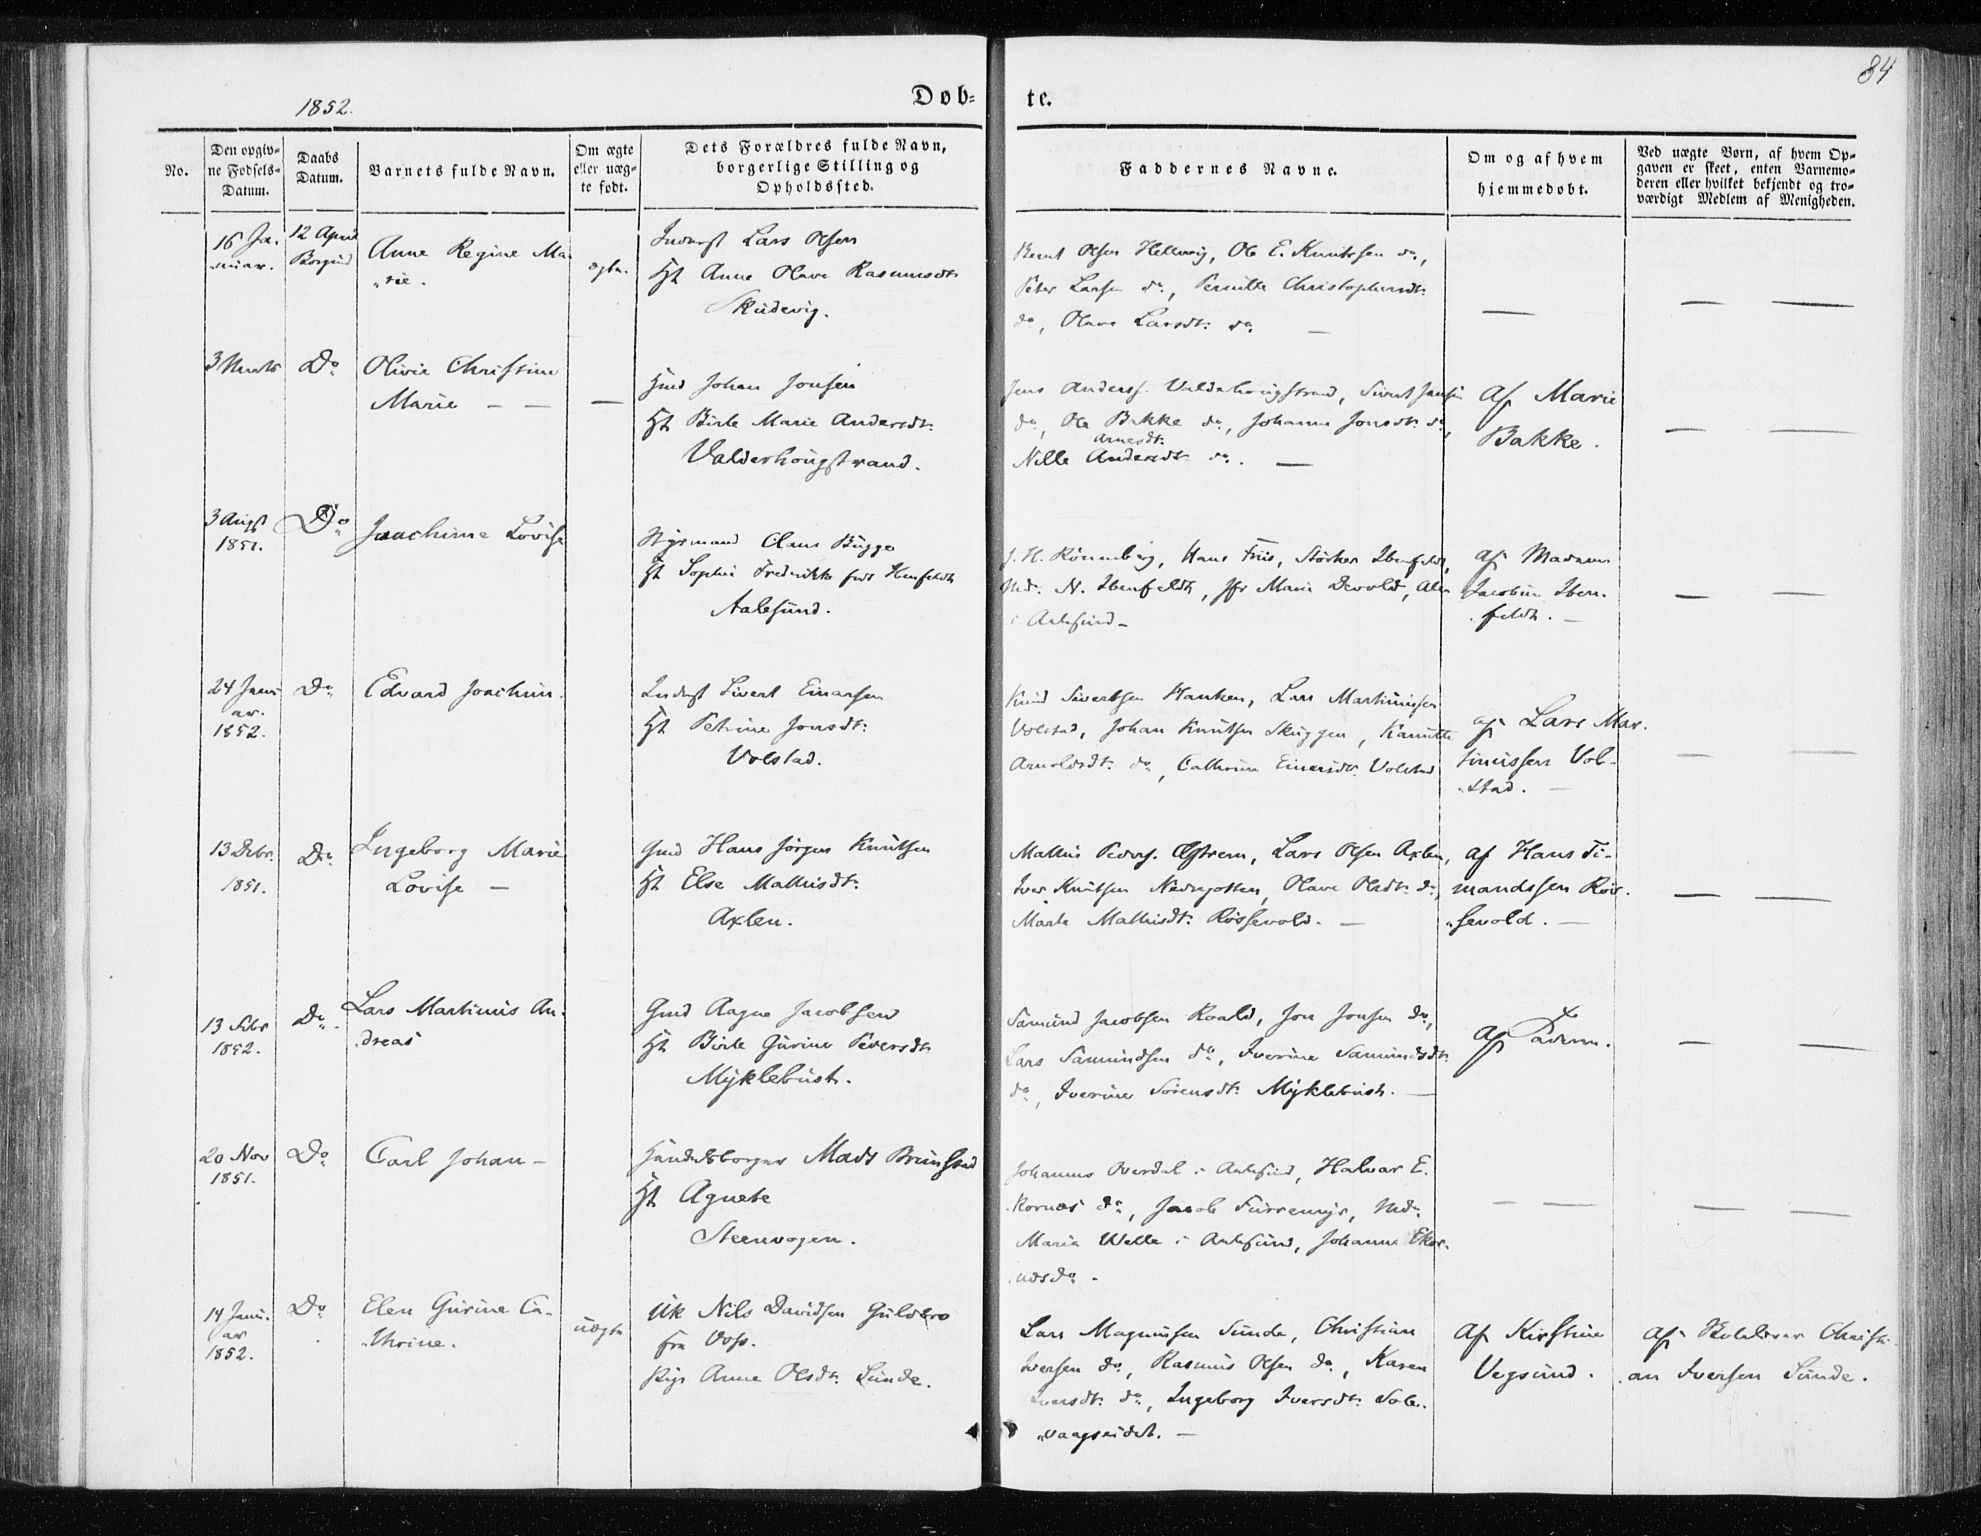 84
1852.
Døb-
te.
No.
Den opgiv-
ne Fødsels-
Datum.
Daabs
Datum.
Barnets fulde Navn.
Om ægte
eller uæg-
te født.
Dets Forældres fulde Navn,
borgerlige Stilling og
Opholdssted.
Faddernes Navne.
Om og af hvem
hjemmedøbt.
Ved uægte Børn, af hvem Op-
gaven er skeet, enten Barnemo-
deren eller hvilket bekjendt og tro-
værdigt Medlem af Menigheden.
16 Ja-
nuar.
12 April
Borgund
Anne Regine Ma-
rie.
ægte.
Inderst Lars Olsen
Anne Olave Rasmusdtr
Skudevig.
Bernt Olsen Hellevig, Ole E. Knutsen do,
Peter Larsen do, Pernille Christophersdtr
do, Olave Larsdtr: do
3 Marts
Do
Olivie Christine
Marie
Gmd Johan Jonsen
Birte Marie Andersdtr:
Valderhougstrand.
Jens Anders. Valderhougstrand, Sivert Jensen
do, Ole Bakke do, Johanne Jonsdtr do,
Arnesdt:
Nille Andersdtr do.
Af Marie
Bakke.
3 Augst
1851.
Do
Joachime Lovise
Styrmand Claus Bugge
Sophie Fredrikke født
Aalesund.
J. H. Rønneberg, Hans Friis, Støcker Ibenfeldt,
Md: N. Ibenfeldt, Jfr Marie Devold, Alle
i Aalesund
af Madame
Jacobine Iben-
feldt.
24 Janu-
ar.
1852.
Do
Edvard Joachim.
Inderst Sivert Einarsen
Petrine Jonsdt:
Volstad.
Knud Sivertsen Hanken, Lars Martinusen
Volstad, Johan Knutsen Skuggen, Kanutte
Arnoldsdt: do, Cathrine Einersdtr Volstad
af Lars Mar-
tinussen Vol-
stad.
13 Debr.
1851.
Do
Ingeborg Marie
Lovise
Gmd Hans Jørgen Knutsen
Else Mathisdt:
Axlen.
Mathis Peders. Østrem, Lars Olsen Axlen,
Iver Knutsen Nedregotten, Olave Olsdt: do,
Marte Mathisdt: Røssevold.
af Hans Ti-
mandssen Røs-
sevold.
13 Febr
1852.
Do
Lars Martinus An-
dreas
Gmd Aagne Jacobsen
Birte Gurine Pedersdt
Myklebust.
Samund Jacobsen Roald, Jon Jonsen do,
Lars Samundsen do, Iverine Samundsdt:
do, Iverine Sørensdt: Myklebust.
Af Faderen.
20 Nov
1851.
Do
Carl Johan
Handelsborger Mads Brunstad
Agnete
Steenvogen.
Johannes Overdal i Aalesund, Halvar E.
kornæs do, Jacob Furremyr, Md:
Maria Welle i Aalesund, Johanne Ekor-
næs do.
14 Janu-
ar
1852.
Do
Elen Gurine Ca-
thrine.
uægte
Uk Nils Davidsen Guldbro
fra Voss.
Pige Anne Olsdt: Sunde.
Lars Magnussen Sunde, Christian
Iversen do, Rasmus Olsen do, Karen
Iversdt: do, Ingeborg Iversdt: Sole-
vaagseidet.
Af Kirstine
Vegsund.
af Skolelærer Christi-
an Iversen Sunde.